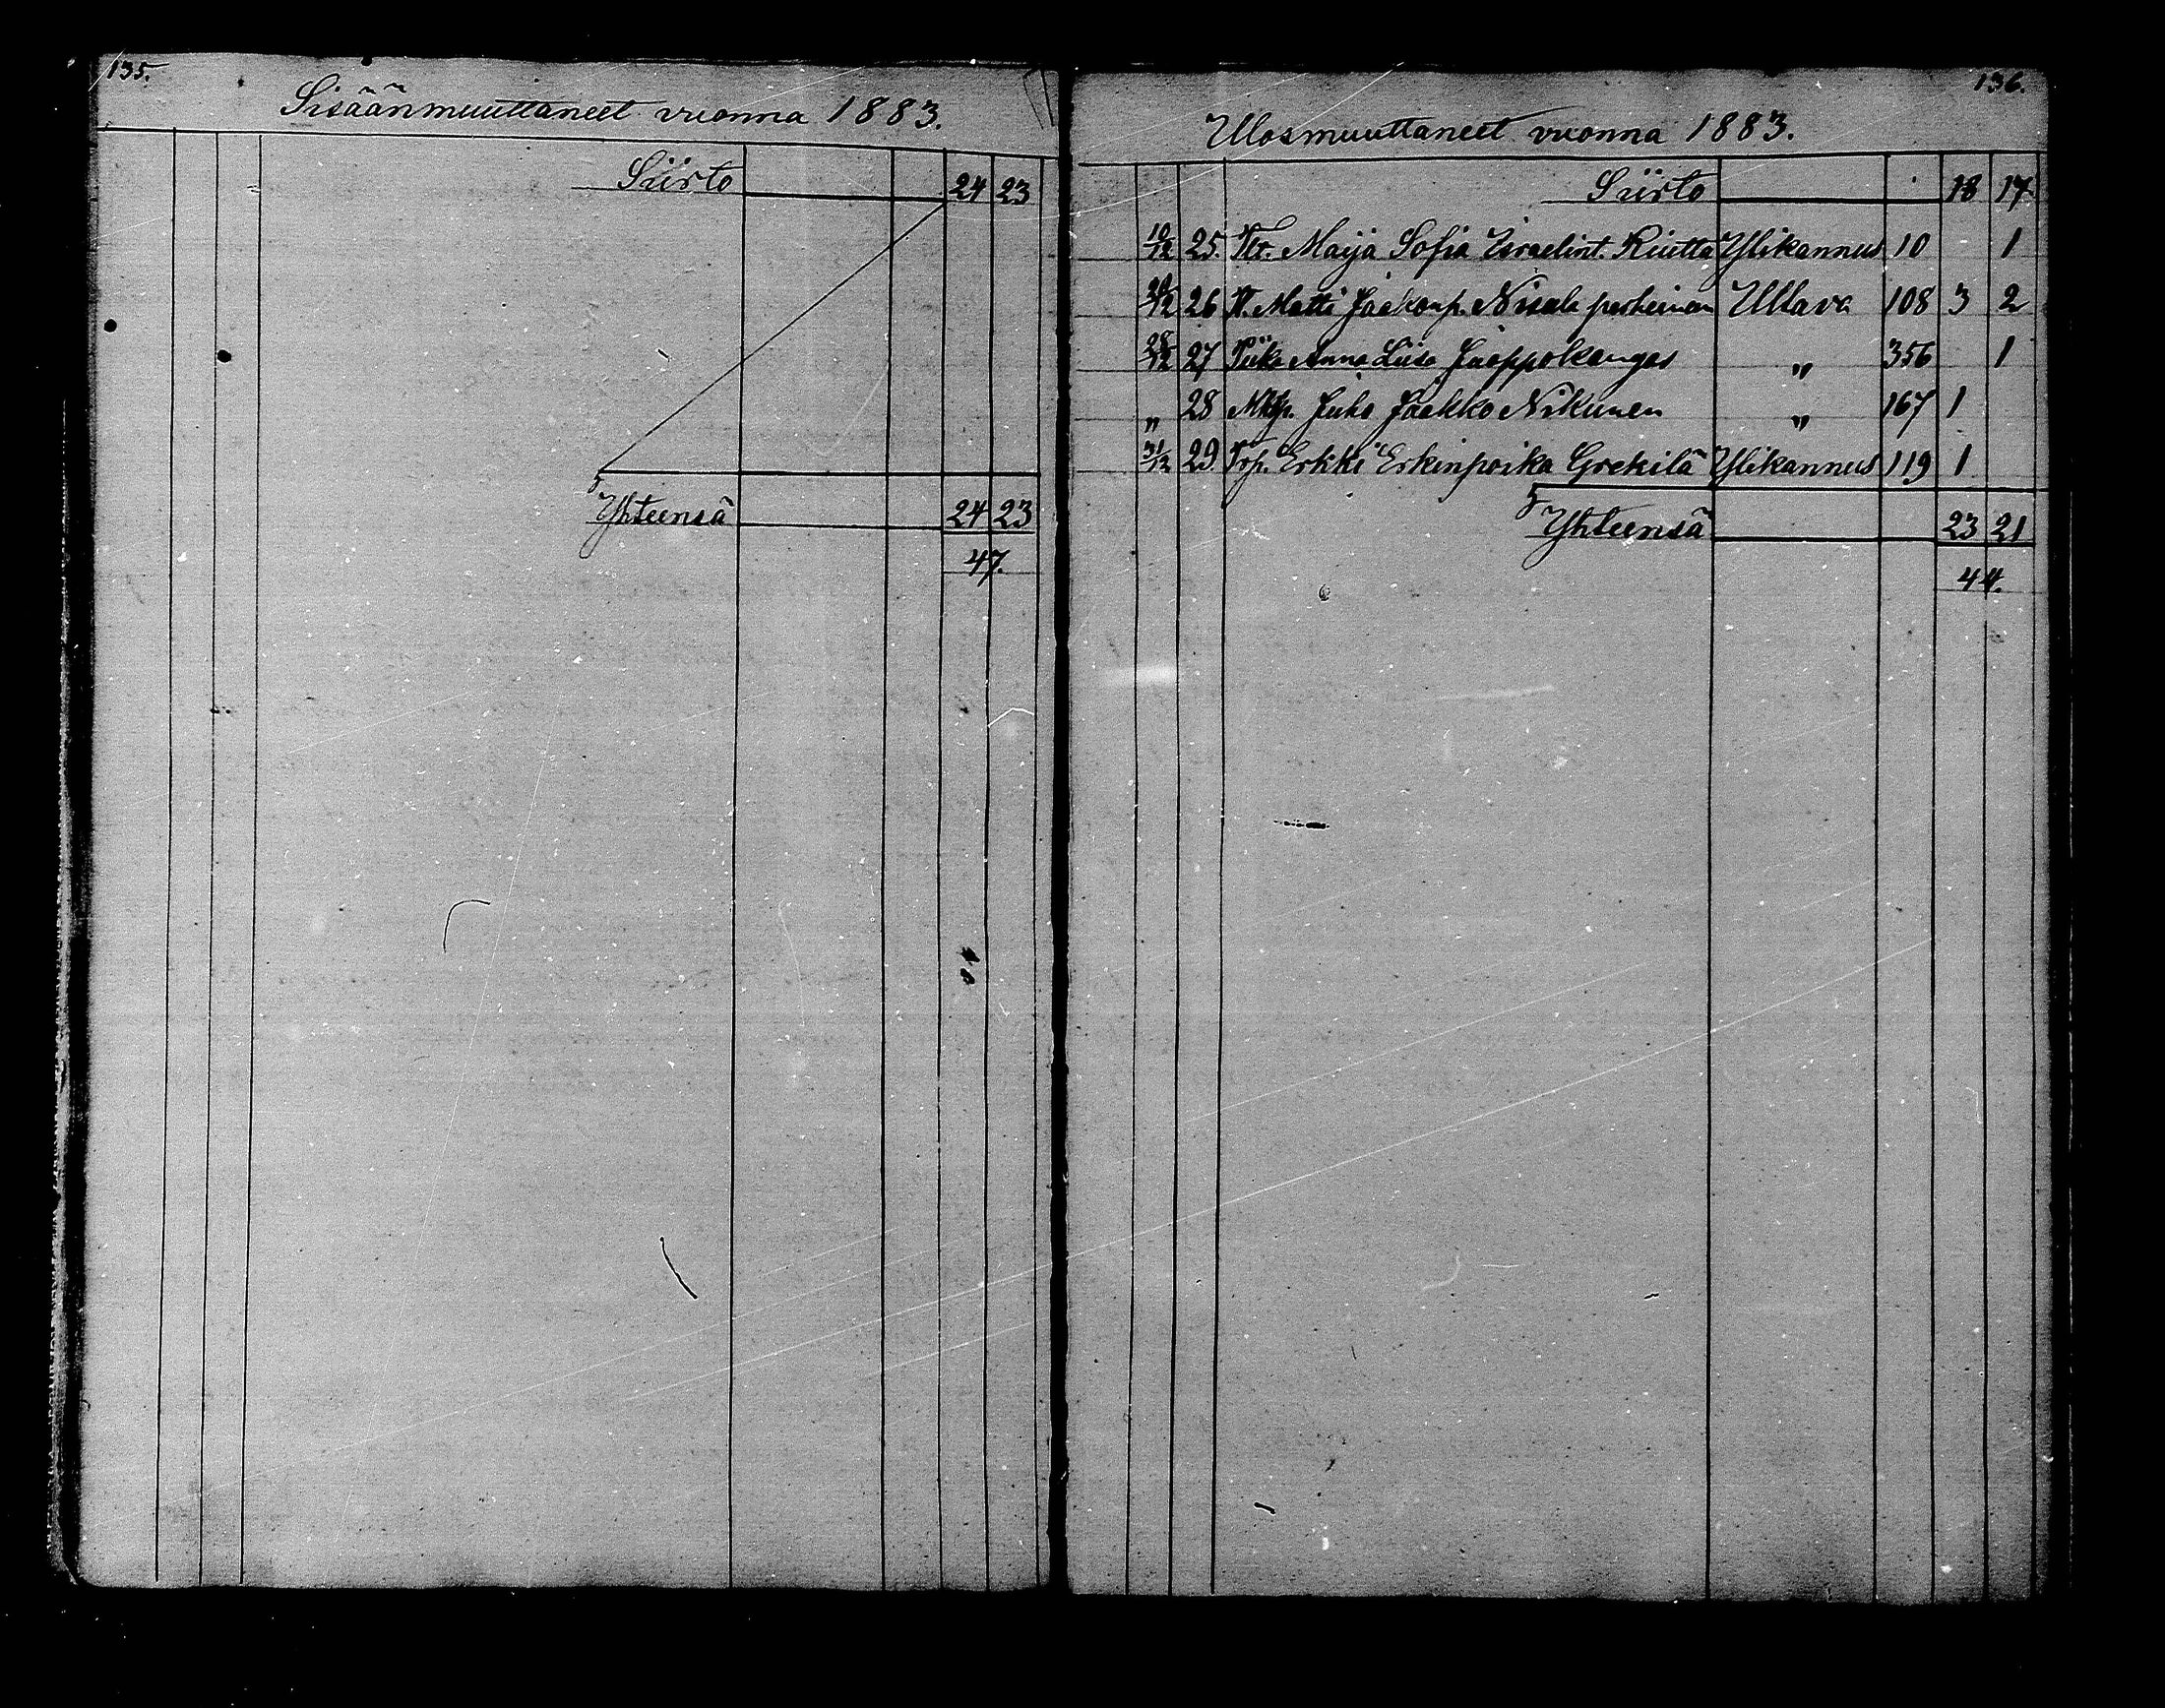 135.
Sisäänmuuttaneet vuonna 1883.
Siirto 24 23
Yhteensä 24 23
47.
136.
Ulosmuuttaneet vuonna 1883.
Siirto 18 17
10/12 25. Tlt. Maija Sofia Israelint. Riutta Ylikannus 10 1
26 Tl. Matti Jaakonp. Nisula perheinen Ullava 108 3 2
28/12 27 Piika Anna Liisa Jaoppokangas " 356 1
" 28 Juho Jaakko Nikunen " 167 1
31/12 29 Trp. Erkki Erkinpoika Grekilä Ylikannus 119 1
Yhteensä 23 21
44.